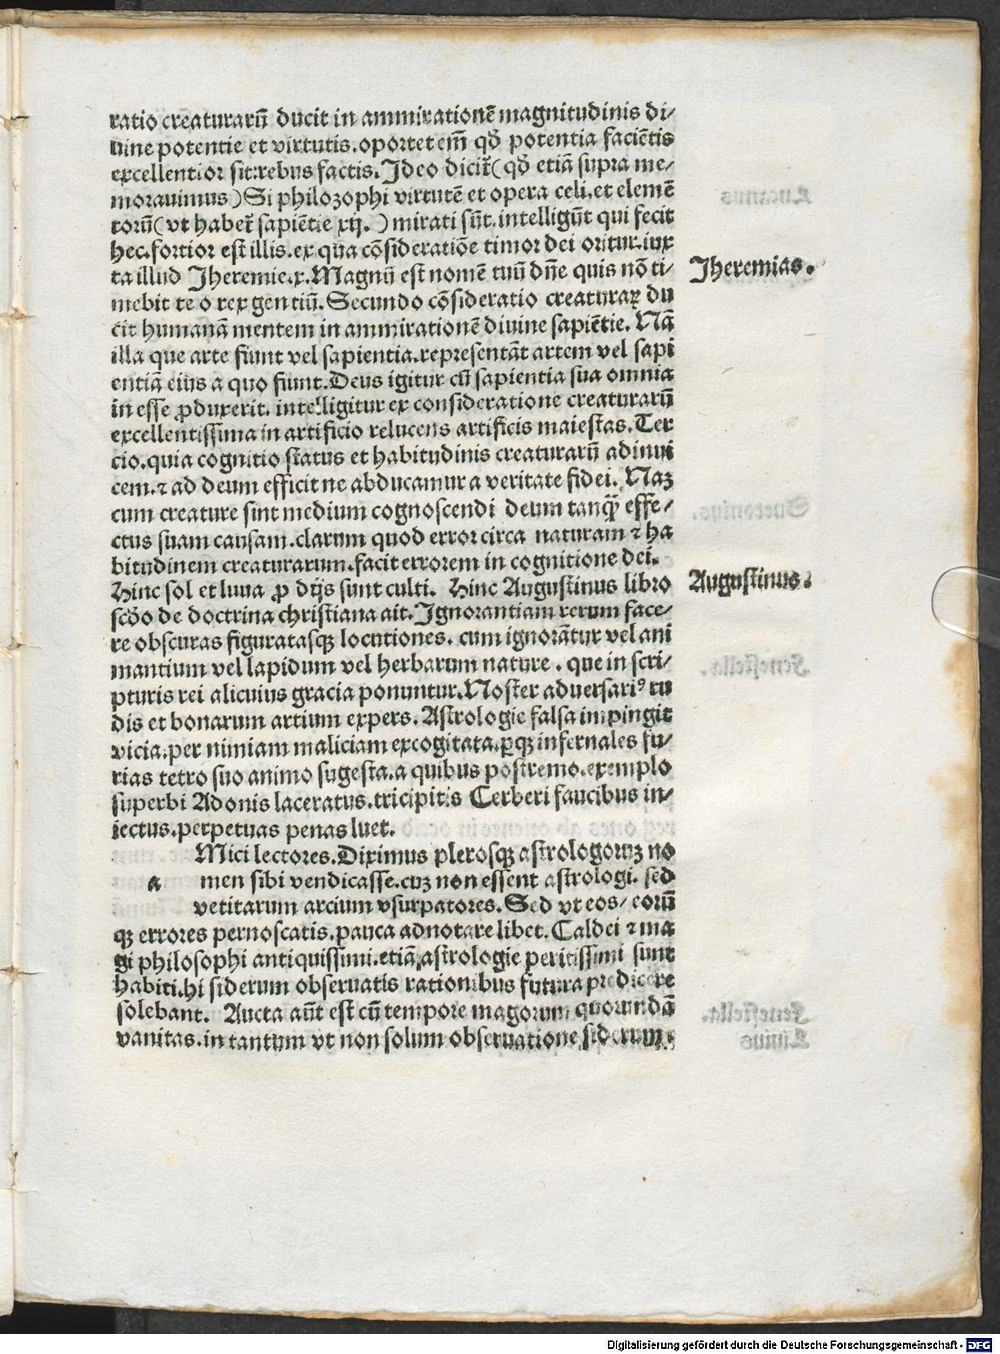 ratio creaturarū ducit in ammirationē magnitudinis di⸗
uine potentie et virtutis. oportet em̄ qđ potentia faciētis
excellentior sit: rebus factis. Ideo dicit̃ (qđ etiā supra me⸗
morauimus) Si philozophi virtutē et opera celi. et elemē
torū (vt habet̃ sapiētie xij.) mirati sūt. intelligūt qui fecit
hec. fortior est illis. ex qua cōsideratiōe timor dei oritur. iux
ta illud Jheremie. x. Magnū est nomē tuū dn̄e quis nō ti⸗
mebit te o rex gentiū. Secundo cōsideratio creaturaꝝ du
cit humanā mentem in ammirationē diuine sapiētie. Nā
illa que arte fiunt vel sapientia. representāt artem vel sapi
entiā eius a quo fiunt. Deus igitur cū sapientia sua omnia
in esse ꝓduxerit. intelligitur ex consideratione creaturarū
excellentissima in artificio relucens artificis maiestas. Ter
cio. quia cognitio status et habitudinis creaturarū adinui
cem. ⁊ ad deum efficit ne abducamur a veritate fidei. Naꝫ
cum creature sint medium cognoscendi deum tanꝙ̄ effe⸗
ctus suam causam. clarum quod error circa naturam ⁊ ha
bitudinem creaturarum. facit errorem in cognitione dei.
Hinc sol et luna ꝓ dijs sunt culti. Hinc Augustinus libro
scđo de doctrina christiana ait. Ignorantiam rerum face⸗
re obscuras figuratasqꝫ locutiones. cum ignorātur vel ani
mantium vel lapidum vel herbarum nature. que in scri⸗
pturis rei alicuius gracia ponuntur. Noster aduersariꝰ ru
dis et bonarum artium expers. Astrologie falsa impingit
vicia. per nimiam maliciam excogitata. ꝑqꝫ infernales fu⸗
rias tetro suo animo sugesta. a quibus postremo. exemplo
superbi Adonis laceratus. tricipitis Cerberi faucibus in⸗
iectus. perpetuas penas luet.
a Mici lectores. Diximus plerosqꝫ astrologoruꝫ no
men sibi vendicasse. cuꝫ non essent astrologi. sed
vetitarum artium vsurpatores. Sed vt eos/ eorū
qꝫ errores pernoscatis. pauca adnotare libet. Caldei ⁊ ma
gi philosophi antiquissimi. etiā astrologie peritissimi sunt
habiti. hi siderum obseruatis rationibus futura predicere
solebant. Aucta aūt est cū tempore magorum quorundā
vanitas. in tantum vt non solum obseruatione siderum.
Jheremias.
Augustinus.
Digitalisierung gefördert durch die Deutsche Forschungsgemeinschaft - DFG